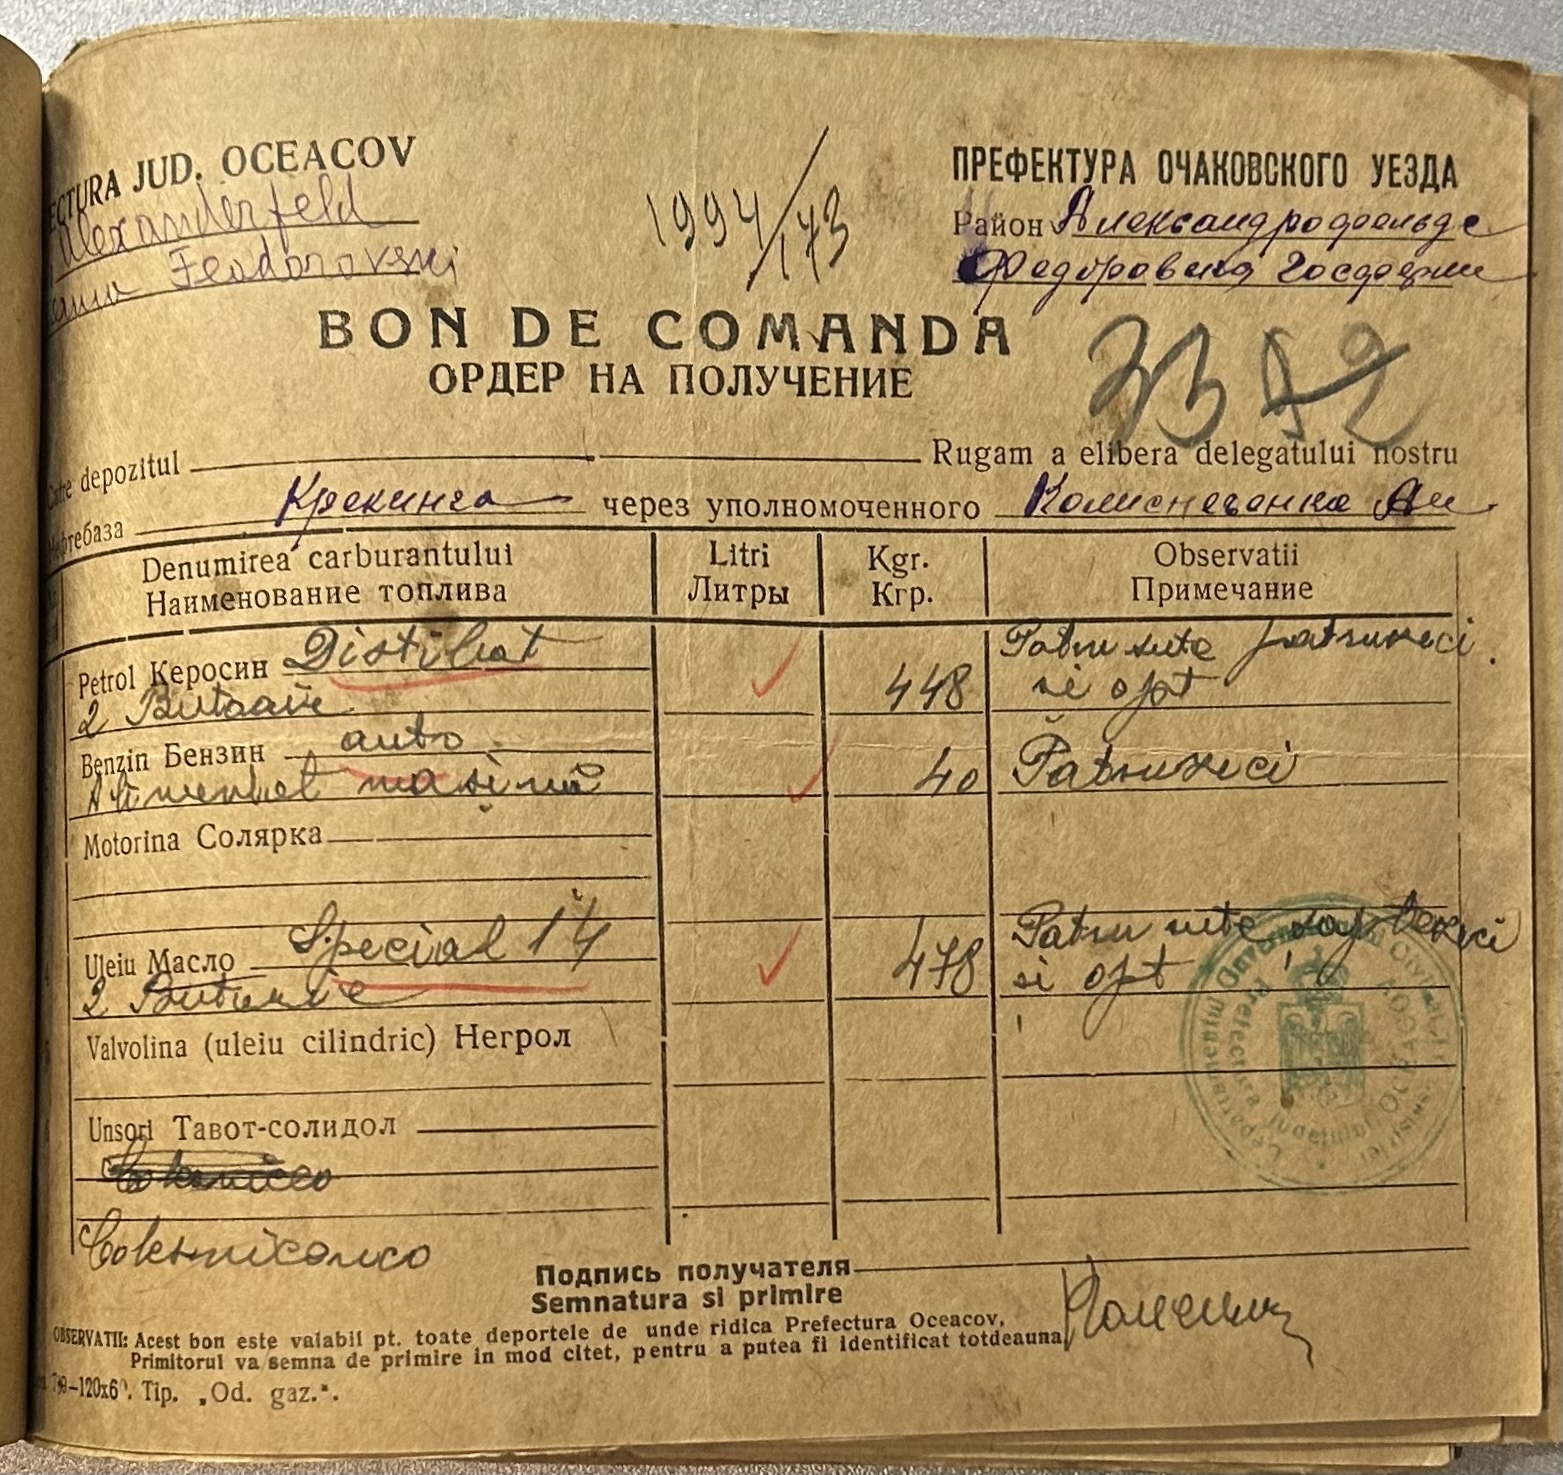 ECTURA JUD. OCEACOV
Alexanderfeld
Feodorovski
1994/173
ПРЕФЕКТУРА ОЧАКОВСКОГО УЕЗДА
Район Александрофельдс
Федоровка
BON DE COMANDA
ОРДЕР НА ПОЛУЧЕНИЕ
Catre depozitul Rugam a elibera delegatului nostru
Нефтебаза Крекинга через уполномоченного
Denumirea carburantului Litri Kgr. Observatii
Наименование топлива Литры Кгр. Примечание
Petrol Керосин Distilat 448 Patru sute patruzeci
2 Butoaie și opt
Benzin Бензин auto 40 Patruzeci
Alimentat mașină
Motorina Солярка
Uleiu Масло Special 14 478 Patru sute șaptezeci
2 Butoaie și opt
Valvolina (uleiu cilindric) Негрол
Unsori Тавот-солидол
Подпись получателя
Semnatura si primire
OBSERVATII: Acest bon este valabil pt. toate deportele de unde ridica Prefectura Oceacov,
Primitorul va semna de primire in mod citet, pentru a putea fi identificat totdeauna
-120x6 . Tip. „Od. gaz.".